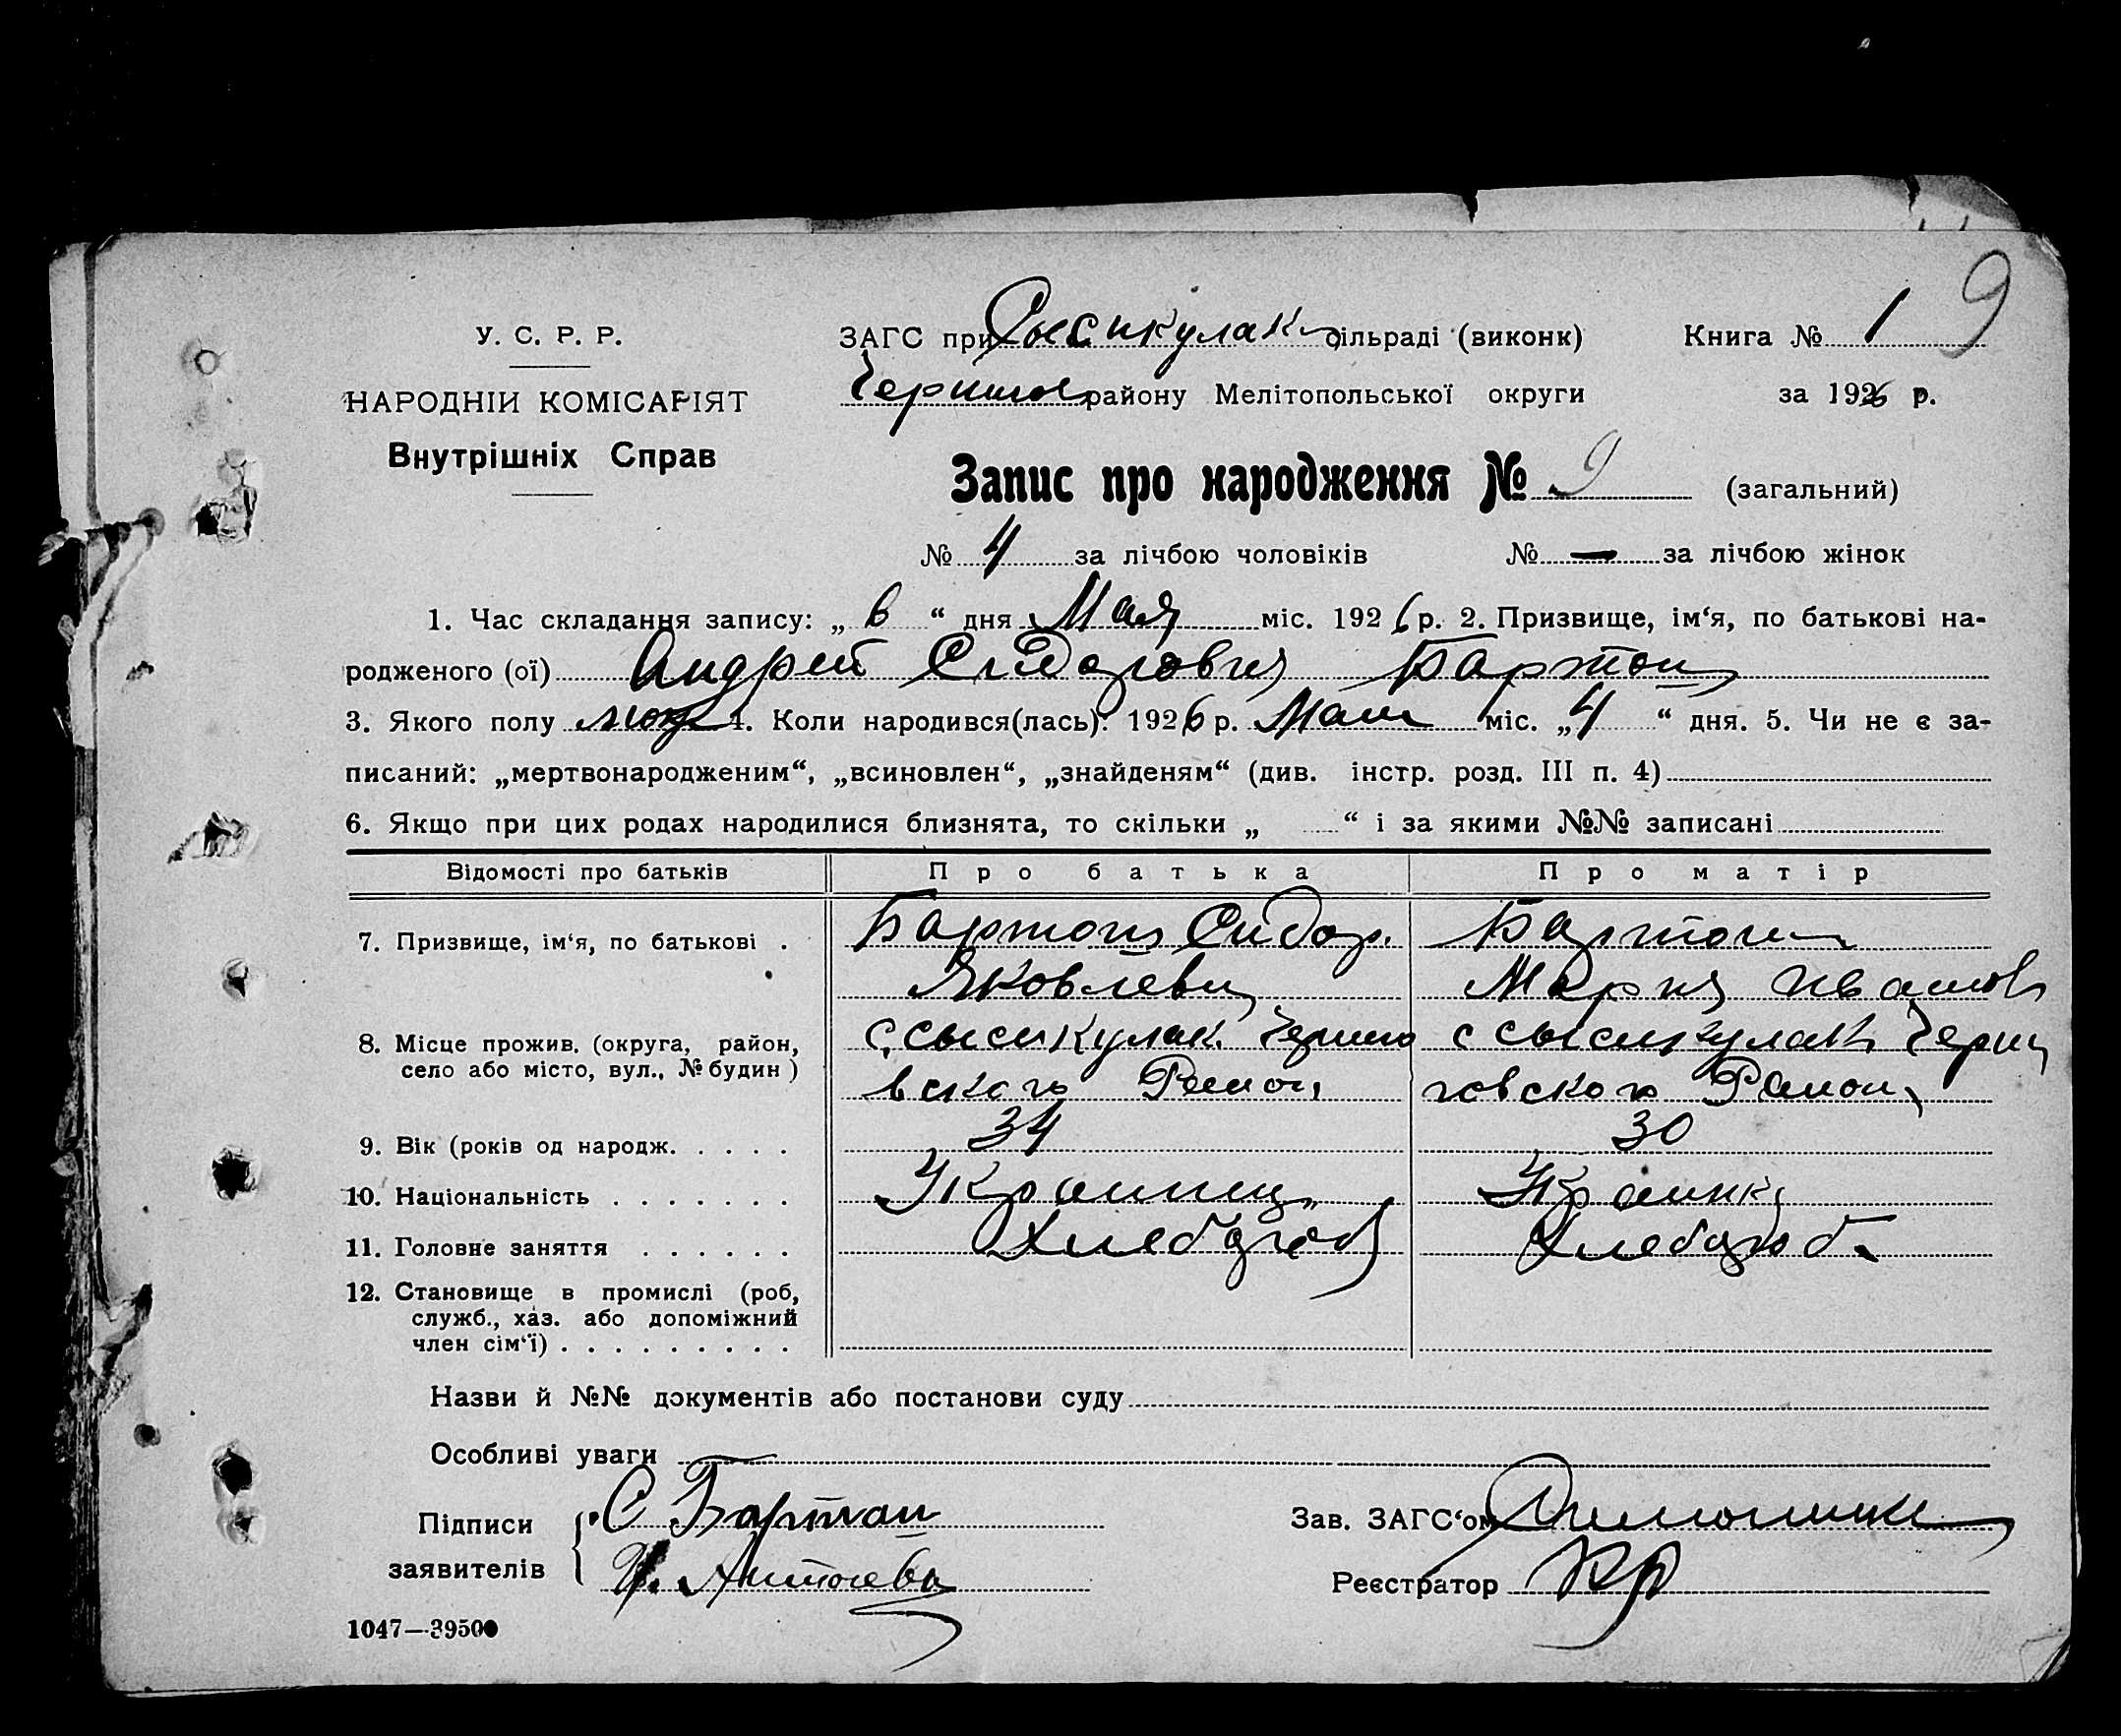 9
У. С. Р. Р.
НАРОДНІЙ КОМІСАРІЯТ
Внутрішніх Справ
ЗАГС при Сысикулак сільраді (виконк)
Книга № 1
Черниговс району Мелітопольської округи
за 1926 р.
Запис про народження № 9 (загальний)
№ 4 за лічбою чоловіків № — за лічбою жінок
1. Час складання запису: „ 6 “ дня Мая міс. 1926 р. 2. Призвище, ім‘я, по батькові на-
родженого (ої) Андрей Сидорович Бартош
3. Якого полу муж 4. Коли народився(лась): 1926 р. Маи міс. „ 4 “ дня. 5. Чи не є за-
писаний: „мертвонародженим“, „всиновлен“, „знайденям“ (див. інстр. розд. III п. 4)
6. Якщо при цих родах народилися близнята, то скільки „ “ і за якими №№ записані
Відомості про батьків Про батька Про матір
7. Призвище, ім‘я, по батькові . Бартош Сидор. Бартош
Яковлевич Мария Иванов
8. Місце прожив. (округа, район, с. сысикулак Черниго с сысикулак Черни
село або місто, вул., № будин ) вского Раион говского Раион
9. Вік (років од народж. . . . . 34 30
10. Національність . . . . . . . Украинец Украинка
11. Головне заняття . . . . . . Хлебороб Хлебороб.
12. Становище в промислі (роб,
служб., хаз. або допоміжний
член сім‘ї) . . . . . . . . .
Назви й №№ документів або постанови суду
Особливі уваги
Підписи
заявителів
С Бартош
Зав. ЗАГС‘ом
Реєстратор
1047—39500